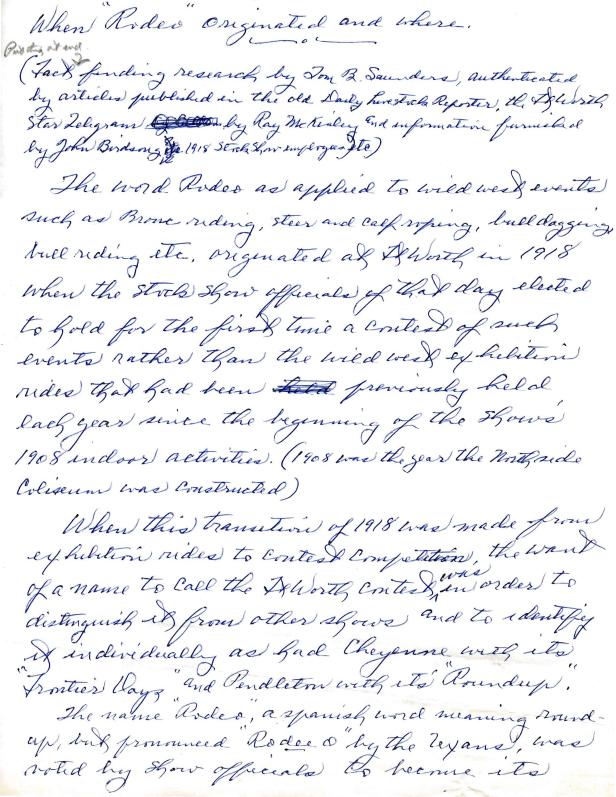 When "Rodeo" originated and where.
(Fact finding research by Tom B. Saunders, authenticated
by articles published in the old Daily Livestock Reporter, the Ft Worth
Star Telegram by Ray McKinley and information furnished
by John Birdsong 1918 Stock Show employee, etc)
The word Rodeo as applied to wild west events
such as Bronc riding, steer and calf roping, bulldogging,
bull riding etc. originated at Ft Worth in 1918
when the Stock Show officials of that day elected
to hold for the first time a contest of such
events rather than the wild west exhibition
rides that had been previously held
each year since the beginning of the Shows'
1908 indoor activities. (1908 was the year the Northside
Coliseum was constructed)
When this transition of 1918 was made from
exhibition rides to contest competition, the want
of a name to call the Ft Worth Contest, was in order to
distinguish it from other shows and to identify
it individually as had Cheyenne with its
"Frontier Days" and Pendleton with its "Roundup".
The name "Rodeo", a spanish word meaning round-
up, but pronounced "Rodeeo" by the Texans, was
voted by Show officials to become its